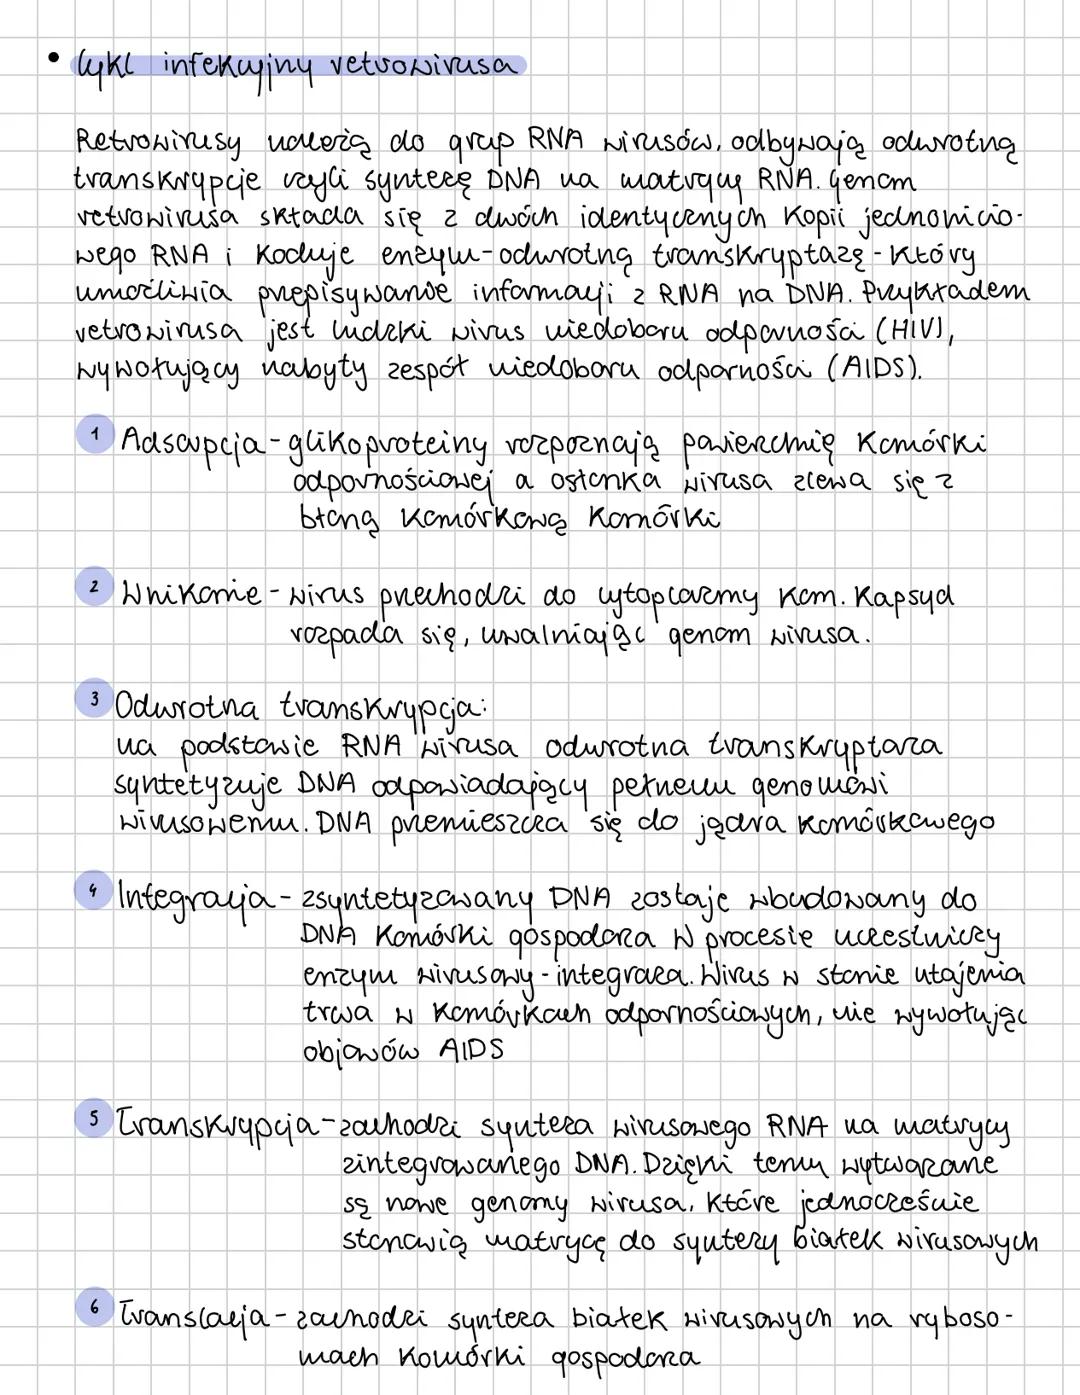 • Cykl infekcyjny retrowirusa
Retrowirusy należą do grup RNA wirusów, odbywają odwrotną
transkrypcje czyli syntezę DNA na matrycy RNA. Genom
retrowirusa składa się z dwóch identycznych kopii jednonicio-
wego RNA i koduje enzym - odwrotną transkryptazę - który
umożliwia przepisywanie informacji z RNA na DNA. Przykładem
retrowirusa jest ludzki wirus niedoboru odporności (HIV),
wywołujący nabyty zespół niedoboru odporności (AIDS).
1 Adsorpcja - glikoproteiny rozpoznają powierzchnię komórki
odpornościowej a osłonka wirusa zlewa się z
błoną komórkową komórki
2 Wnikanie - wirus przechodzi do cytoplazmy kom. Kapsyd
rozpada się, uwalniając genom wirusa.
3 Odwrotna transkrypcja:
na podstawie RNA wirusa odwrotna transkryptaza
syntetyzuje DNA odpowiadający pełnemu genomowi
wirusowemu. DNA przemieszcza się do jądra komórkowego
4 Integracja - zsyntetyzowany DNA zostaje wbudowany do
DNA komórki gospodarza W procesie uczestniczy
enzym wirusowy - integraza. Wirus w stanie utajenia
trwa w komórkach odpornościowych, nie wywołując
objawów AIDS
5 Transkrypcja - zachodzi synteza wirusowego RNA na matrycy
zintegrowanego DNA. Dzięki temu wytwarzane
są nowe genomy wirusa, które jednocześnie
stanowią matrycę do syntezy białek wirusowych
6 Translacja - zachodzi synteza białek wirusowych na ryboso-
mach komórki gospodarza